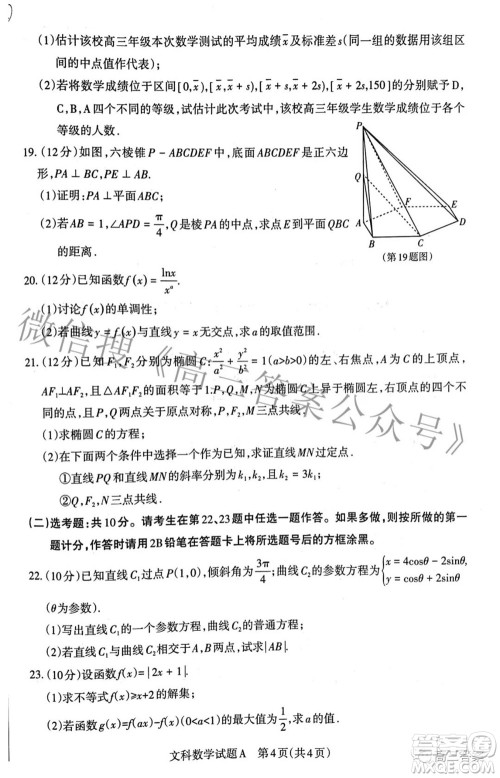 (1)估计该校高三年级本次数学测试的平均成绩x̄及标准差s(同一组的数据用该组区
间的中点值作代表);
(2)若将数学成绩位于区间[0,x̄),[x̄,x̄+s),[x̄+s,x̄+2s),[x̄+2s,150]的分别赋予D,
C,B,A四个不同的等级,试估计此次考试中,该校高三年级学生数学成绩位于各个
等级的人数.
19.(12分)如图,六棱锥P-ABCDEF中,底面ABCDEF是正六边
形,PA⊥BC,PE⊥DE.
(1)证明:PA⊥平面ABCDEF;
(2)若AB=1,∠APD=π/4,Q是棱PA的中点,求点D到平面QBC
的距离.
P
Q
A
B
C
D
E
F
(第19题图)
20.(12分)已知函数f(x)=lnx/x^a.
(1)讨论f(x)的单调性;
(2)若曲线y=f(x)与直线 无交点,求a的取值范围.
21.(12分)已知F₁,F₂分别为椭圆C:x²/a²+y²/b²=1(a>b>0)的左、右焦点,A为C的上顶点,
P,Q,M,N为C上不同的四点,直线PQ与MN
交于点F₂,P,Q两点关于原点对称,
(1)求椭圆C的方程;
(2)在下面两个条件中选择一个作为已知,求证直线MN过定点.
①直线PQ和直线MN的斜率分别为k₁,k₂,且
②Q,F₂,N三点共线.
(二)选考题:共10分。请考生在第22,23题中任选一题作答。如果多做,则按所做的第一
题计分,作答时请用2B铅笔在答题卡上将所选题号后的方框涂黑。
22.(10分)已知直线C₁过点P(1,0),倾斜角为3π/4;曲线C₂的参数方程为{x=4cosθ-2sinθ,
y=cosθ+2sinθ
(θ为参数).
(1)写出直线C₁的一个参数方程与曲线C₂的普通方程;
(2)若直线C₁与曲线C₂相交于A,B两点,求|AB|.
23.(10分)设函数f(x)=|2x+1|.
(1)求不等式f(x)≥4+x的解集;
(2)若函数g(x)=f(ax)-af(x)(0<a<1)的最大值为1/2,求a的值.
文科数学试题A 第4页(共4页)
微信搜《高三答案公众号》